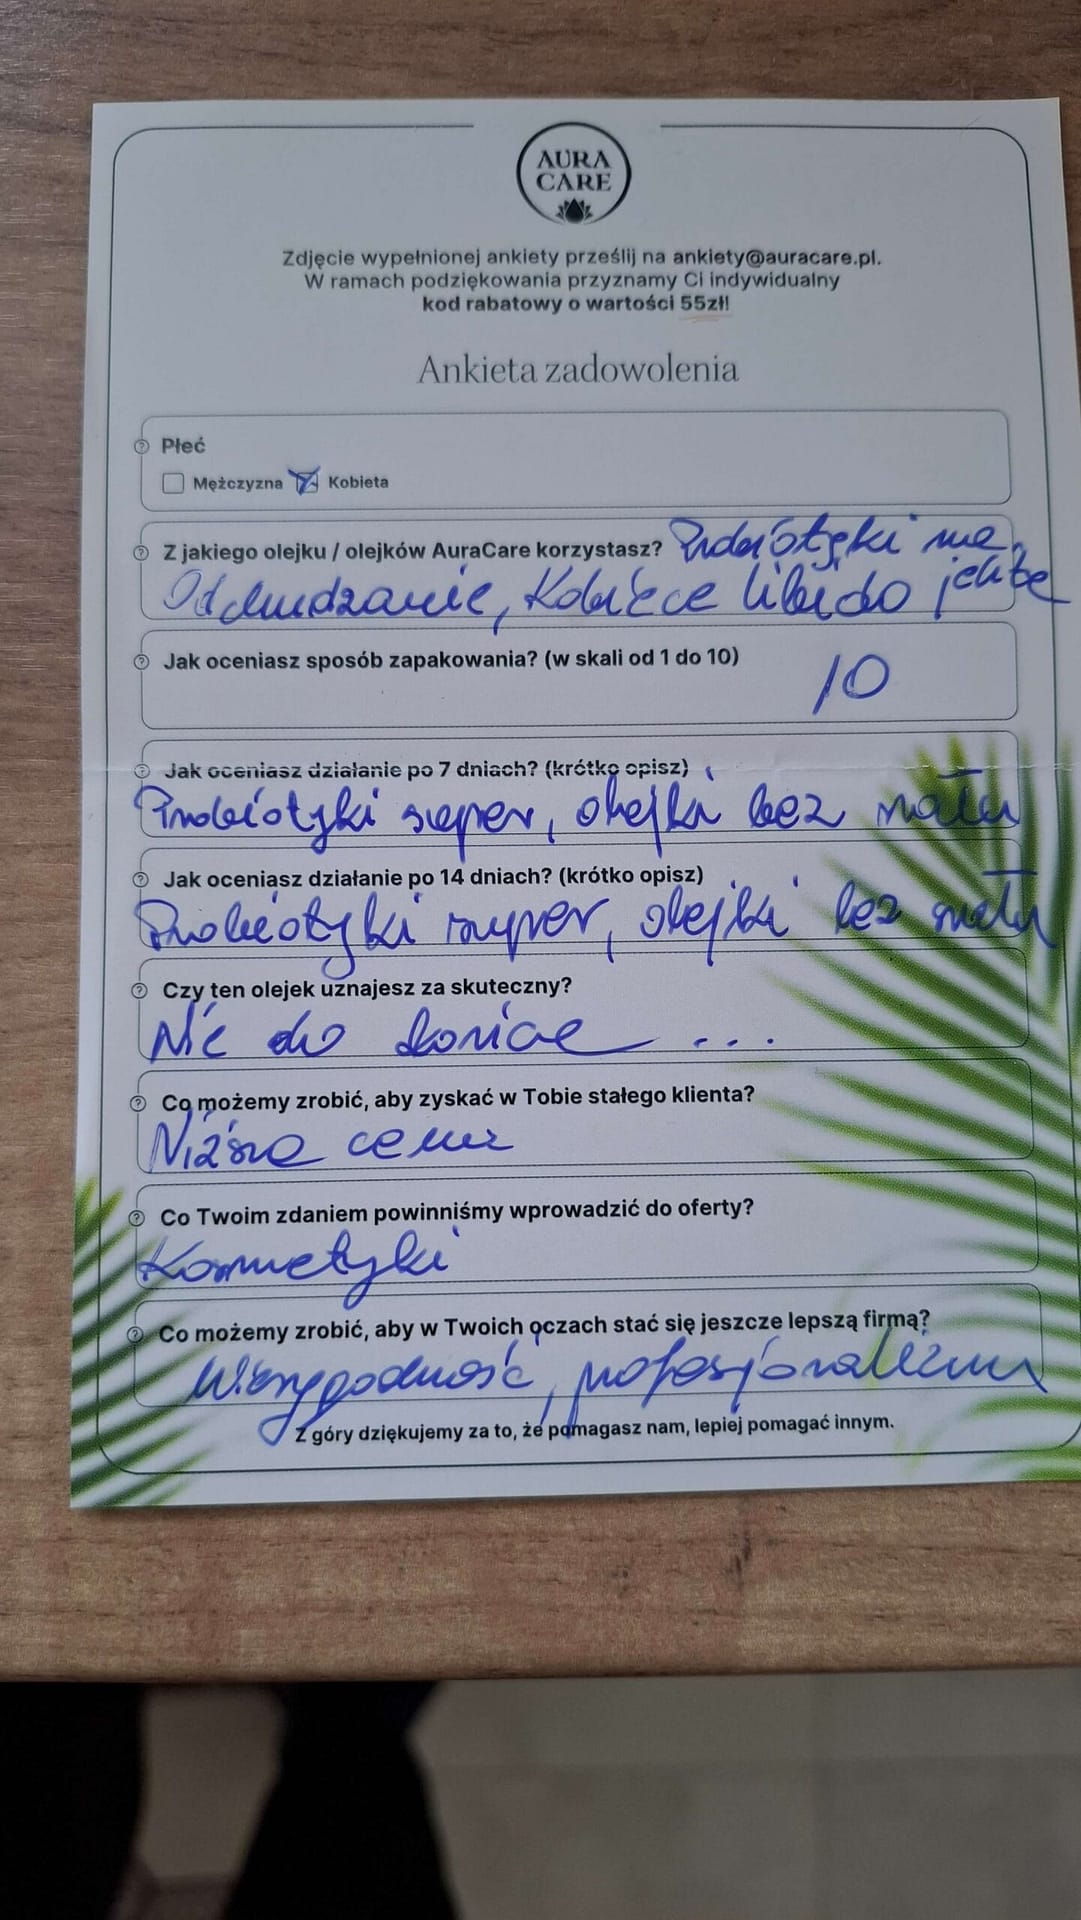 AURA
CARE
Zdjęcie wypełnionej ankiety prześlij na ankiety@auracare.pl.
W ramach podziękowania przyznamy Ci indywidualny
kod rabatowy o wartości 55zł!
Ankieta zadowolenia
Płeć
Mężczyzna Kobieta
Z jakiego olejku / olejków AuraCare korzystasz? Probiotyki na
Odchudzanie, Kobiece libido jelita
Jak oceniasz sposób zapakowania? (w skali od 1 do 10)
10
Jak oceniasz działanie po 7 dniach? (krótko opisz)
Probiotyki super, olejki bez szału
Jak oceniasz działanie po 14 dniach? (krótko opisz)
Probiotyki super, olejki bez szału
Czy ten olejek uznajesz za skuteczny?
Nie do końca ...
Co możemy zrobić, aby zyskać w Tobie stałego klienta?
Niższa cena
Co Twoim zdaniem powinniśmy wprowadzić do oferty?
Kosmetyki
Co możemy zrobić, aby w Twoich oczach stać się jeszcze lepszą firmą?
Wiarygodność, profesjonalizm
Z góry dziękujemy za to, że pomagasz nam, lepiej pomagać innym.